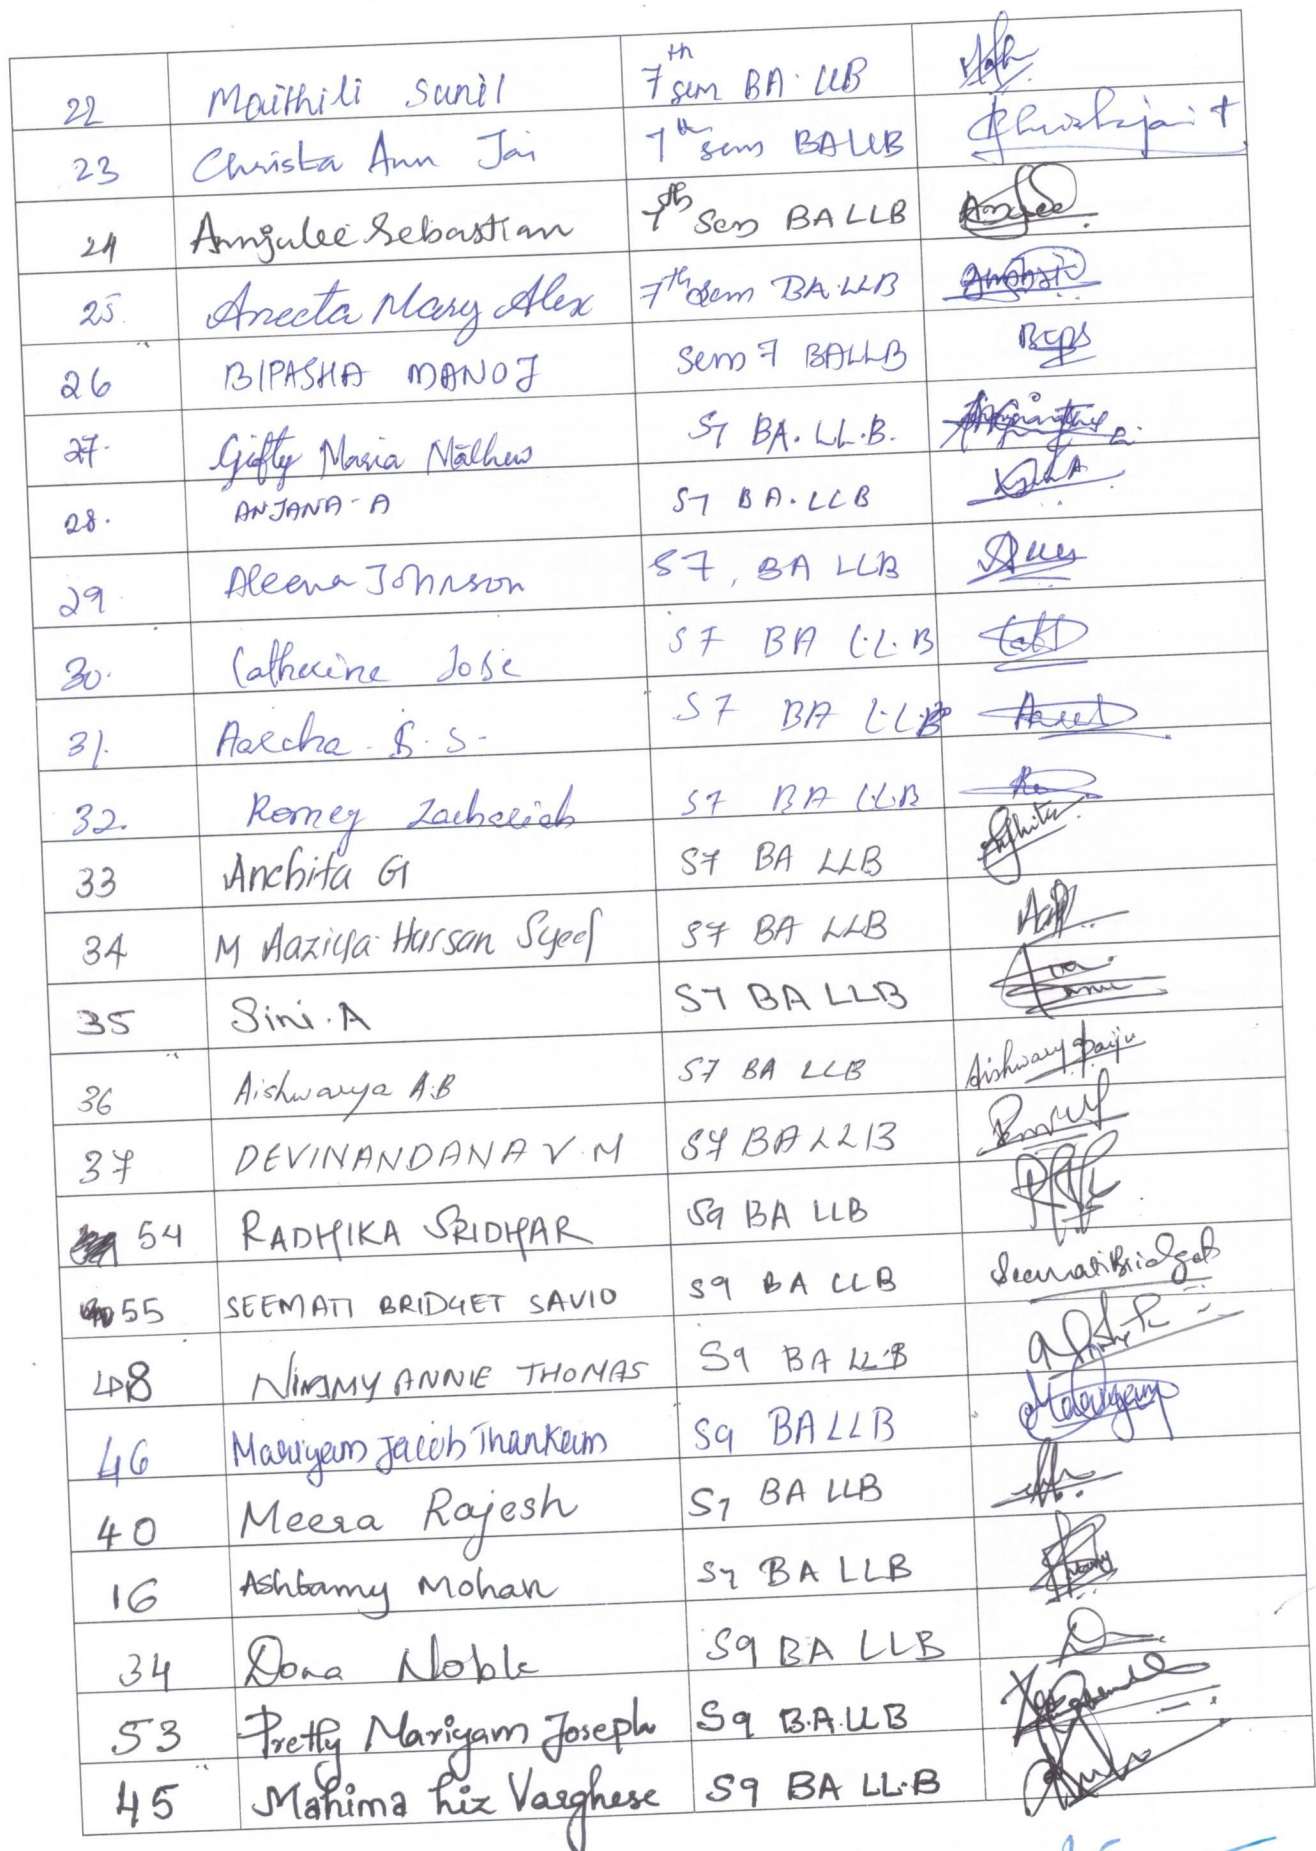 22 Maithili Sunil 7th sem BA. LLB
23 Christa Ann Jai 7th sem BALLB
24 Annjalee Sebastian 7th Sem BA LLB
25. Aneeta Mary Alex 7th Sem BA.LLB
26 BIPASHA MANOJ Sem 7 BALLB
27. Gifty Maria Mathew S7 BA. LL.B.
28. ANJANA-A S7 BA. LLB
29. Aleena Johnson S7, BA LLB
30. Catherine Jose S7 BA L.L.B
31. Aarcha S.S. S7 BA L.L.B
32. Romey Zachariah S7 BA L.L.B
33 Anchita G S7 BA LLB
34 M Aaziya Hassan Syed S7 BA LLB
35 Sini.A S7 BA LLB
36 Aishwarya A.B S7 BA LLB Aishwarya baiju
37 DEVINANDANA V.M S7 BA LLB
54 RADHIKA SRIDHAR S9 BA LLB
55 SEEMATI BRIDGET SAVIO S9 BA LLB Seemati Bridget
48 NIMMY ANNIE THOMAS S9 BA LLB
46 Mariyam Jacob Thankam S9 BALLB Mariyam
40 Meera Rajesh S7 BA LLB
16 Ashtamy Mohan S7 BA LLB
34 Dona Noble S9 BA LLB
53 Pretty Mariyam Joseph S9 B.A.LLB
45 Mahima Liz Varghese S9 BA LL.B